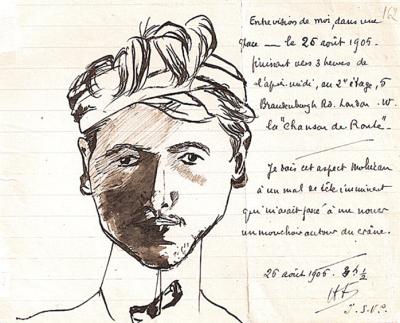 162
Entrevision de moi, dans une
glace — le 26 août 1905.
finissant vers 3 heures de
l'après-midi, au 2e étage, 5
Brandenburgh Rd. London - W.
la "Chanson de Route".
Je dois cet aspect
à un mal de tête imminent
qui m'avait forcé à me nouer
un mouchoir autour du crâne.
26 août 1905. 3h ½